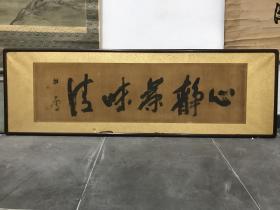 心静茶味清